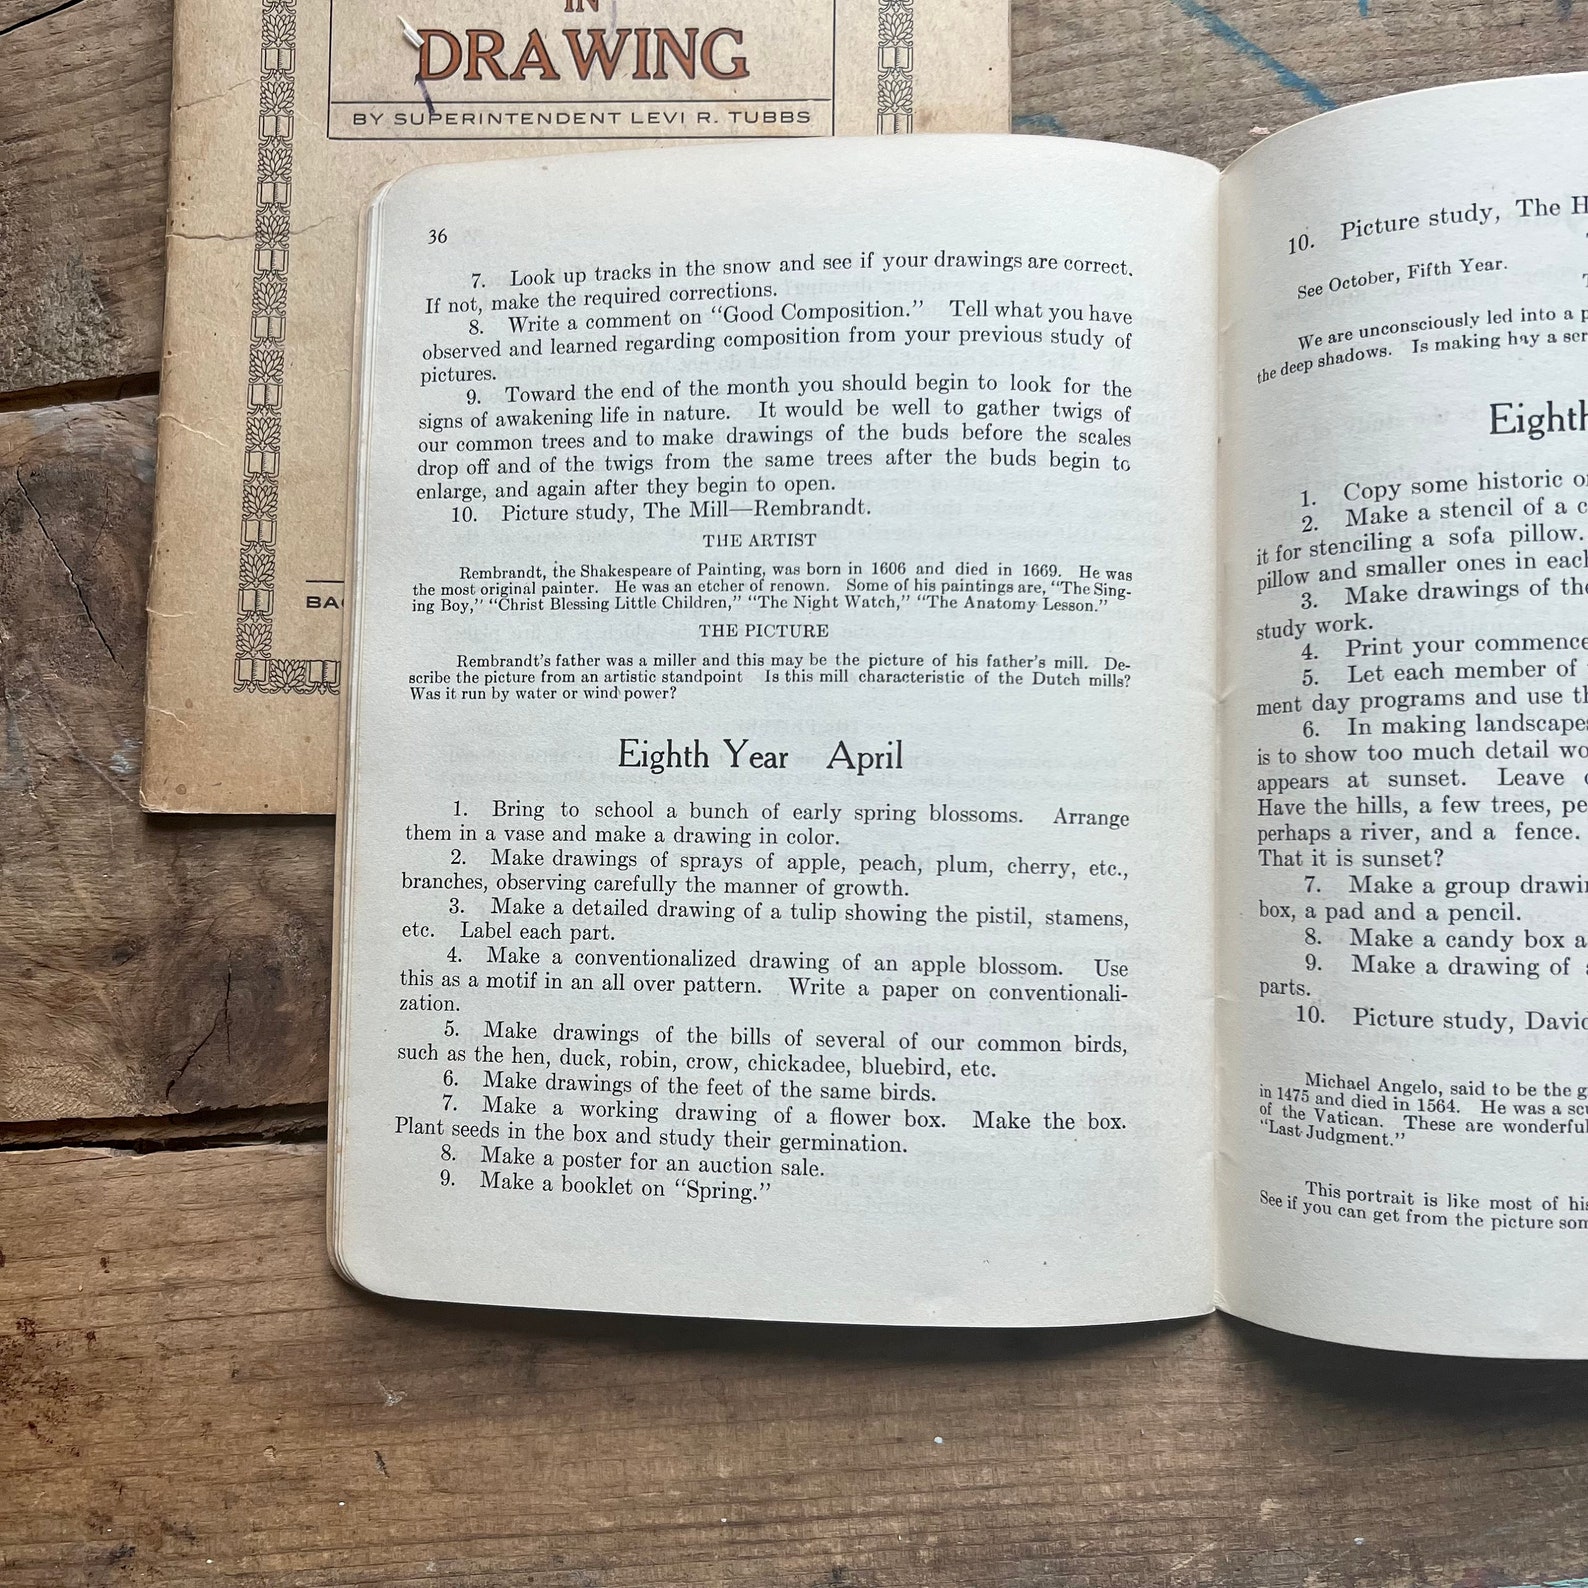 IN
DRAWING
BY SUPERINTENDENT LEVI R. TUBBS
36
7. Look up tracks in the snow and see if your drawings are correct.
If not, make the required corrections.
8. Write a comment on "Good Composition." Tell what you have
observed and learned regarding composition from your previous study of
pictures.
9. Toward the end of the month you should begin to look for the
signs of awakening life in nature. It would be well to gather twigs of
our common trees and to make drawings of the buds before the scales
drop off and of the twigs from the same trees after the buds begin to
enlarge, and again after they begin to open.
10. Picture study, The Mill—Rembrandt.
THE ARTIST
Rembrandt, the Shakespeare of Painting, was born in 1606 and died in 1669. He was
the most original painter. He was an etcher of renown. Some of his paintings are, "The Sing-
ing Boy," "Christ Blessing Little Children," "The Night Watch," "The Anatomy Lesson."
THE PICTURE
Rembrandt's father was a miller and this may be the picture of his father's mill. De-
scribe the picture from an artistic standpoint Is this mill characteristic of the Dutch mills?
Was it run by water or wind power?
Eighth Year April
1. Bring to school a bunch of early spring blossoms. Arrange
them in a vase and make a drawing in color.
2. Make drawings of sprays of apple, peach, plum, cherry, etc.,
branches, observing carefully the manner of growth.
3. Make a detailed drawing of a tulip showing the pistil, stamens,
etc. Label each part.
4. Make a conventionalized drawing of an apple blossom. Use
this as a motif in an all over pattern. Write a paper on conventionali-
zation.
5. Make drawings of the bills of several of our common birds,
such as the hen, duck, robin, crow, chickadee, bluebird, etc.
6. Make drawings of the feet of the same birds.
7. Make a working drawing of a flower box. Make the box.
Plant seeds in the box and study their germination.
8. Make a poster for an auction sale.
9. Make a booklet on "Spring."
10. Picture study, The H
See October, Fifth Year.
We are unconsciously led into a p
the deep shadows. Is making hay a ser
Eighth
1. Copy some historic o
2. Make a stencil of a c
it for stenciling a sofa pillow.
pillow and smaller ones in each
3. Make drawings of the
study work.
4. Print your commence
5. Let each member of
ment day programs and use th
6. In making landscapes
is to show too much detail wo
appears at sunset. Leave
Have the hills, a few trees, pe
perhaps a river, and a fence.
That it is sunset?
7. Make a group drawin
box, a pad and a pencil.
8. Make a candy box a
9. Make a drawing of
parts.
10. Picture study, David
Michael Angelo, said to be the g
in 1475 and died in 1564. He was a scu
of the Vatican. These are wonderful
"Last Judgment."
This portrait is like most of his
See if you can get from the picture som